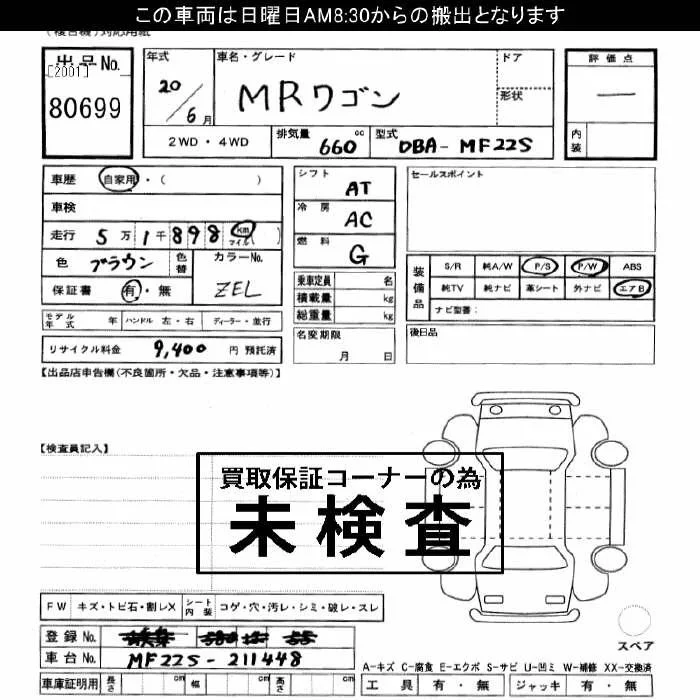 この車両は日曜日AM8:30からの搬出となります
(複合機)対応用紙
出品No.
[2001]
80699
年式
20/6月
車名・グレード
MRワゴン
ドア
形状
2WD・4WD
排気量 660 cc
型式 DBA-MF22S
評価点
―
内装
車歴 自家用・( )
車検
走行 5万1千898 km マイル( )
色 ブラウン 色替
カラーNo. ZEL
保証書 有・無
モデル年式 年 ハンドル 左・右 ディーラー・並行
リサイクル料金 9,400 円 預託済
シフト AT
冷房 AC
燃料 G
乗車定員 名
積載量 kg
総重量 kg
名変期限
月 日
セールスポイント
装備品
S/R 純A/W P/S P/W ABS
純TV 純ナビ 革シート 外ナビ エアB
ナビ型番:
後日品
【出品店申告欄(不良箇所・欠品・注意事項等)】
【検査員記入】
買取保証コーナーの為
未検査
FW キズ・トビ石・割レX シート内装 コゲ・穴・汚レ・シミ・破レ・スレ
登録No.
車台No. MF22S-211448
車庫証明用 長さ cm 幅 cm 高さ cm
スペア
A-キズ C-腐食 E-エクボ S-サビ U-凹ミ W-補修 XX-交換済
工具 有・無 ジャッキ 有・無